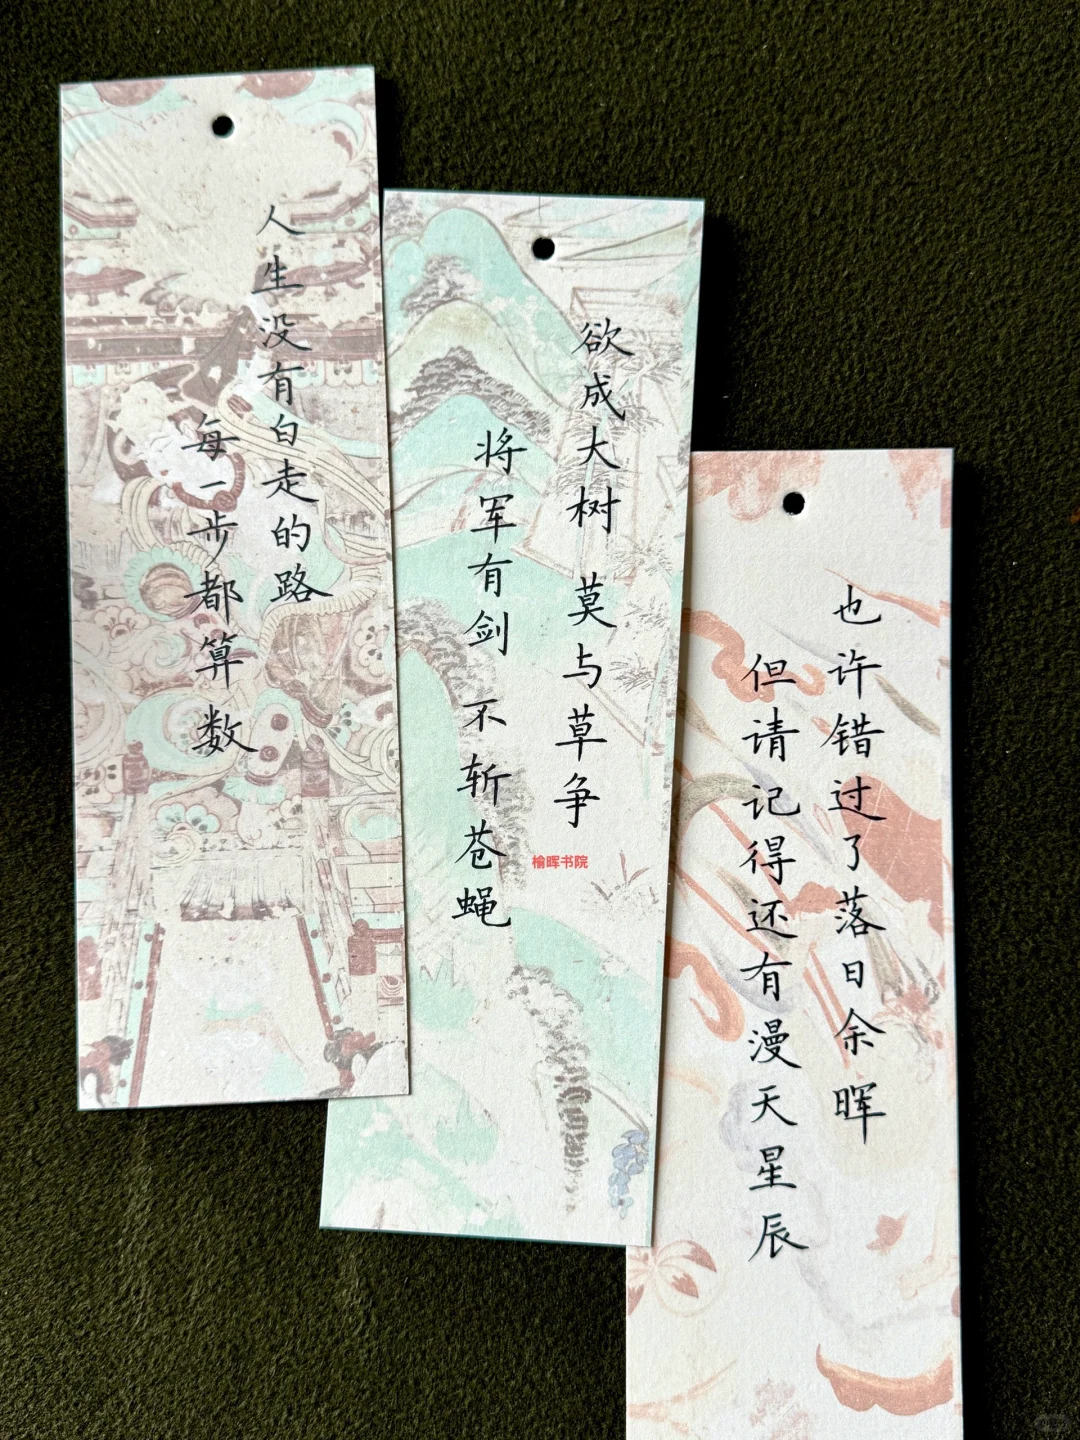 人生没有白走的路
每一步都算数
欲成大树 莫与草争
将军有剑 不斩苍蝇
榆晖书院
也许错过了落日余晖
但请记得还有漫天星辰